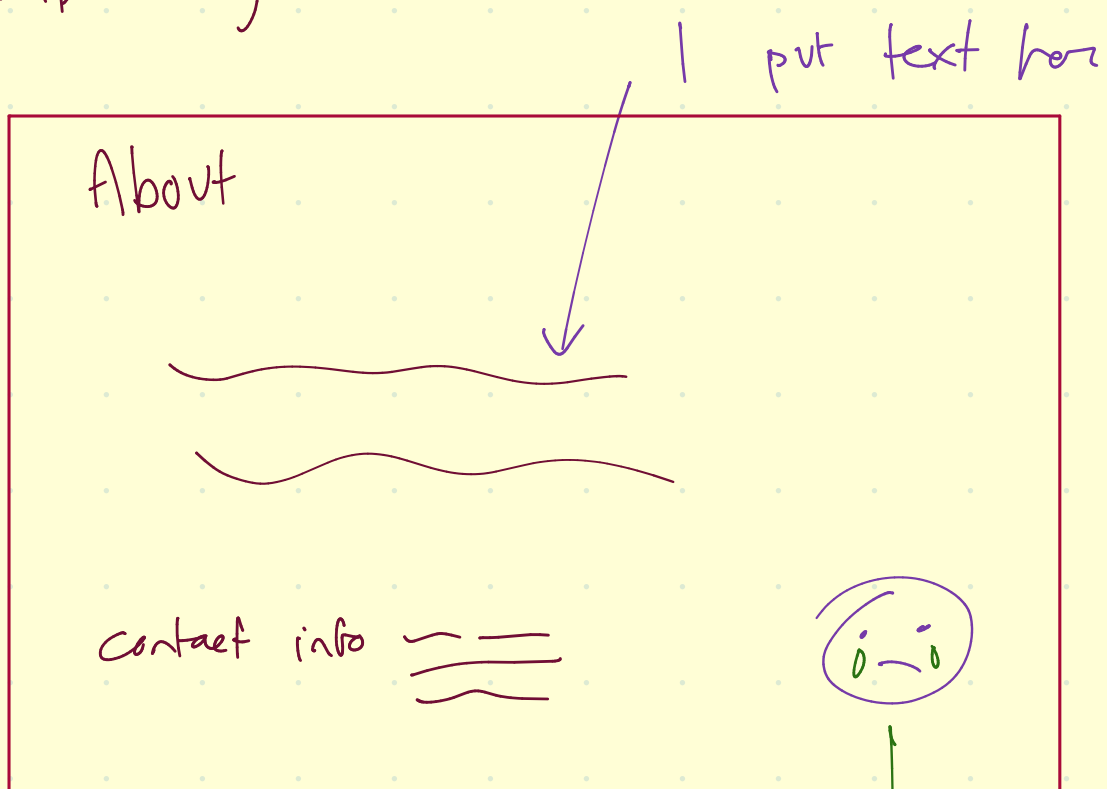 I put text her
About
contact info